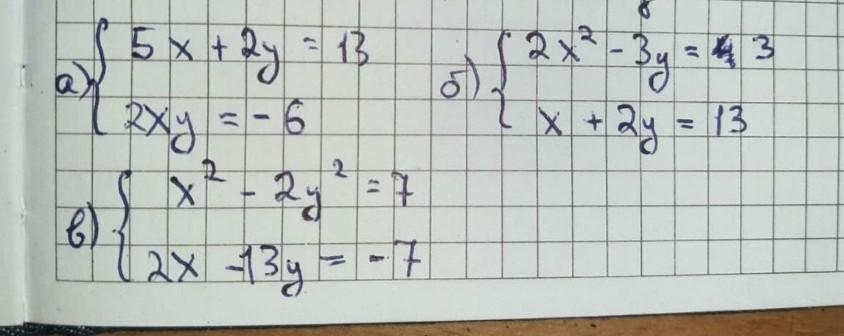 а) { 5x + 2y = 13
2xy = - 6
б) { 2x² - 3y = 3
x + 2y = 13
в) { x² - 2y² = 7
2x - 13y = - 7